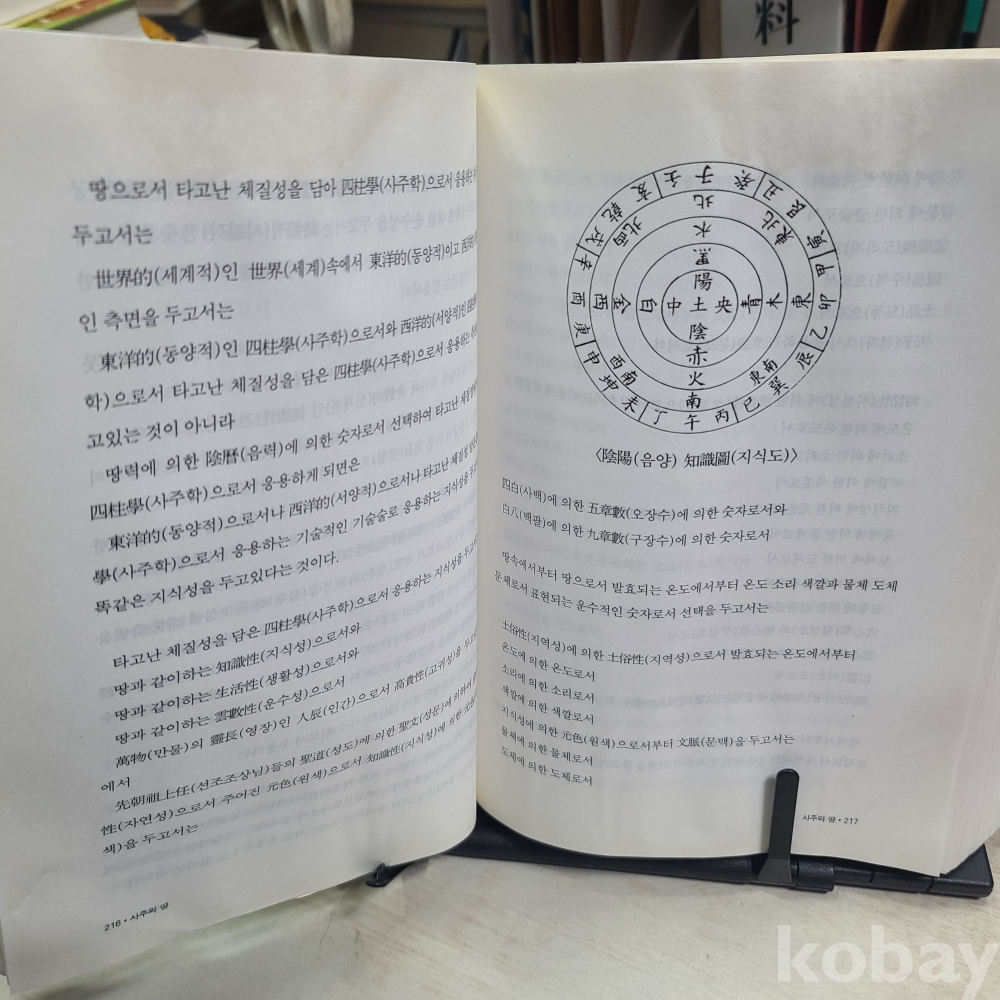 料
땅으로서 타고난 체질성을 담아 四柱學(사주학)으로서 응용하는
두고서는
世界的(세계적)인 世界(세계)속에서 東洋的(동양적)이고 西洋
인 측면을 두고서는
東洋的(동양적)인 四柱學(사주학)으로서와 西洋的(서양적)인
학)으로서 타고난 체질성을 담은 四柱學(사주학)으로서 응용하는
고있는 것이 아니라
땅력에 의한 陰曆(음력)에 의한 숫자로서 선택하여 타고난 체질성
四柱學(사주학)으로서 응용하게 되면은
東洋的(동양적)으로서나 西洋的(서양적)으로서나 타고난 체질성을
學(사주학)으로서 응용하는 기술적인 기술술로 응용하는 지식성을 두고
똑같은 지식성을 두고있다는 것이다.
타고난 체질성을 담은 四柱學(사주학)으로서 응용하는 지식성을 두고
땅과 같이하는 知識性(지식성)으로서와
땅과 같이하는 生活性(생활성)으로서와
땅과 같이하는 雲數性(운수성)으로서
萬物(만물)의 靈長(영장)인 人辰(인간)으로서 高貴性(고귀성)을 두고
에서
先朝祖上任(선조조상님)들의 聖道(성도)에 의한 聖文(성문)에 의하여
性(자연성)으로서 주어진 元色(원색)으로서 知識性(지식성)에 의한
색)을 두고서는
216 • 사주와 땅
亥 壬 子 癸 丑 艮 寅 甲 卯 乙 辰 巽 巳 丙 午 丁 未 坤 申 庚 酉 辛 戌 乾
北 東北 東 東南 南 西南 西 北西
水 木 火 金
黑 靑 赤 白
陽
中 土 央
陰
〈陰陽(음양) 知識圖(지식도)〉
四白(사백)에 의한 五章數(오장수)에 의한 숫자로서와
白八(백팔)에 의한 九章數(구장수)에 의한 숫자로서
땅속에서부터 땅으로서 발효되는 온도에서부터 온도 소리 색깔과 물체 도체
문체로서 표현되는 운수적인 숫자로서 선택을 두고서는
土俗性(지역성)에 의한 土俗性(지역성)으로서 발효되는 온도에서부터
온도에 의한 온도로서
소리에 의한 소리로서
색깔에 의한 색깔로서
지식성에 의한 元色(원색)으로서부터 文脈(문맥)을 두고서는
물체에 의한 물체로서
도체에 의한 도체로서
사주와 땅 • 217
kobay